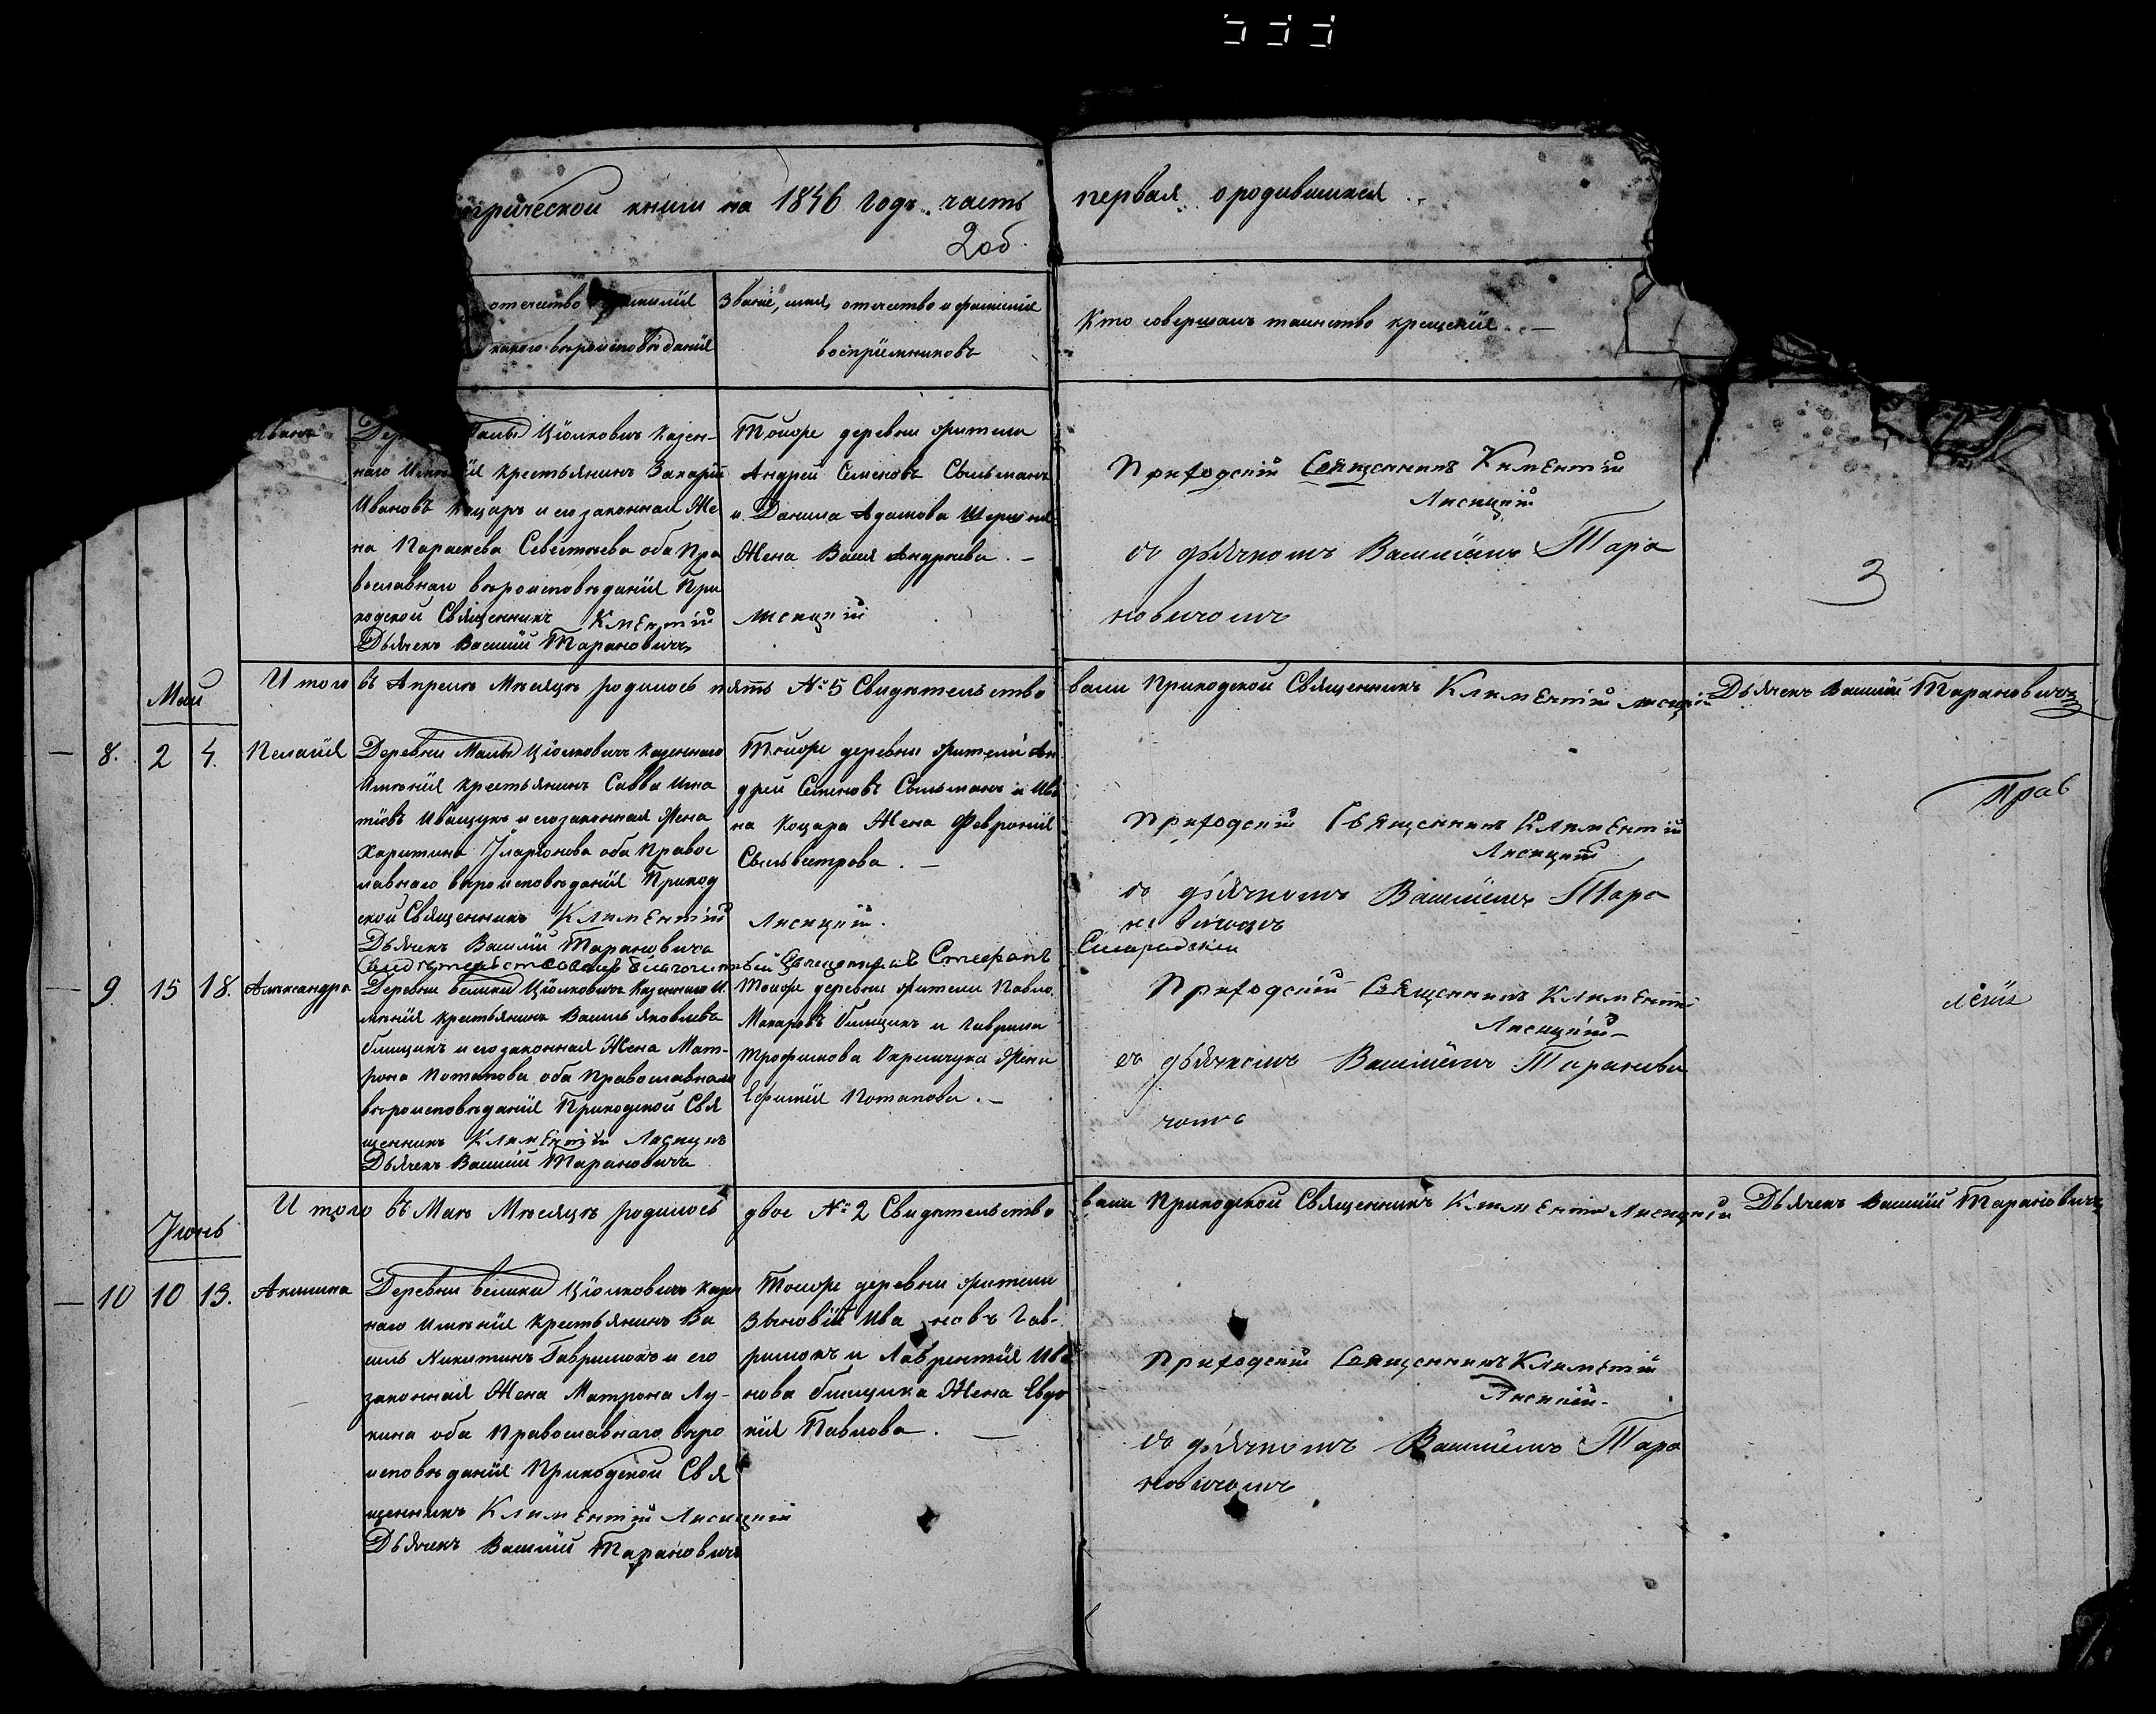 грической книги на 1846 годъ часть первая о родившихся
2 об.
отечество фамилія
какого вѣроисповѣданія
Званіе, имя, отечество и фамилія
воспріемниковъ
Кто совершалъ таинство крещенія
Иванъ
Малы Ціолковичъ казен-
наго имѣнія крестьянинъ Захарій
Ивановъ Коцаръ и его законная Же
на Параскева оба Пра
вославнаго вѣроисповѣданія При
ходской Священникъ Климентій Лисицкій
Дьячекъ Василій Тарановичъ
Тойже деревни жители
Андрей Семеновъ Сыльманъ
и Данила Адамова
Жена Андреева
Приходскій Священникъ Климентій
Лисицкій
съ дьячкомъ Василіемъ Тара
новичомъ
3
Итого въ Апрелѣ Мѣсяцѣ родилось пять № 5 Свидѣтельство
вали Приходской Священникъ Климентій Лисицкій Дьячекъ Василій Тарановичъ
Май
8. 2 4. Пелагія
Деревни Малы Ціолковичъ казеннаго
имѣнія крестьянинъ Савва Игна
тіевъ Иващукъ и его законная Жена
Харитина Иларіонова оба Правос
лавнаго вѣроисповѣданія Приход
ской Священникъ Климентій Лисицкій.
Дьячекъ Василій Тарановичъ
Тойже деревни жители Ан
дрей Семеновъ Сыльманъ и Ива
на Коцара Жена Февронія
Сыльвестрова.
Приходскій Священникъ Климентій
Лисицкій
съ дьячкомъ Василіемъ Тара
новичомъ
Прав
Свидѣтельствовалъ Благочинный Священникъ Стефанъ
9 15 18. Александра
Деревни велики Ціолковичъ Казеннаго И
мѣнія крестьянинъ Василь Яковлевъ
и его законная Жена Мат-
рона Потапова оба Православнаго
вѣроисповѣданія Приходской Свя
щенникъ Климентій Лисицкій
Дьячекъ Василій Тарановичъ
Тойже деревни жители Павло
Макаровъ и Гаврила
Трофимова Жена
Евфимія Потапова.
Приходскій Священникъ Климентій
Лисицкій
съ дьячкомъ Василіемъ Таранови
чомъ
Итого въ Маѣ Мѣсяцѣ родилось двое № 2 Свидѣтельство
вали Приходской Священникъ Климентій Лисицкій Дьячекъ Василій Тарановичъ
Іюнь
10 10 13. Акилина
Деревни велики Ціолковичъ казен
наго имѣнія крестьянинъ Ва
силь Никитинъ Гаврилюкъ и его
законная Жена Матрона Лу-
кина оба Православнаго вѣро
исповѣданія Приходской Свя
щенникъ Климентій Лисицкій
Дьячекъ Василій Тарановичъ
Тойже деревни жители
Зѣновій Ивановъ Гав-
рилюкъ и Лаврентія Ива
нова Жена Евдо
кія Павлова.
Приходскій Священникъ Климентій
съ дьячкомъ Василіемъ Тара
новичомъ